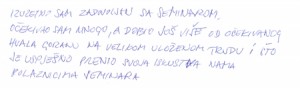 IZUZETNO SAM ZADOVOLJAN SA SEMINAROM.
OČEKIVAO SAM MNOGO, A DOBIO JOŠ VIŠE OD OČEKIVANOG
HVALA GORANU NA VELIKOM ULOŽENOM TRUDU I ŠTO
JE USPJEŠNO PRENIO SVOJA ISKUSTVA NAMA
POLAZNICIMA SEMINARA